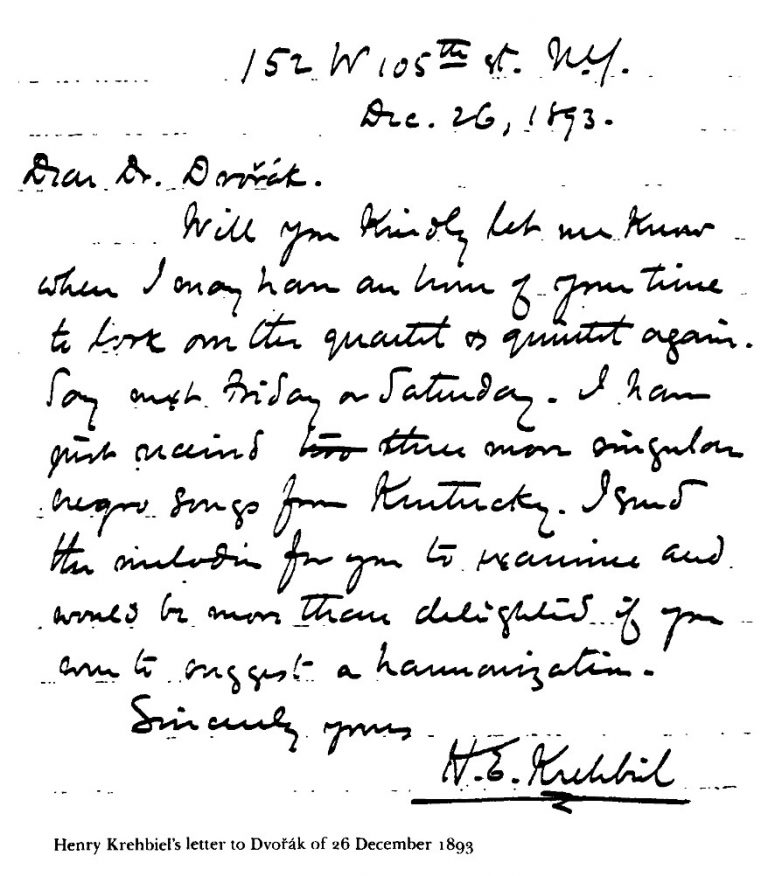 152 W 105th st. N.Y.
Dec. 26, 1893.
Dear Dr. Dvořák.
Will you kindly let me know
when I may have an hour of your time
to look over the quartet & quintet again.
Say next Friday or Saturday. I have
just received two three more singular
negro songs from Kentucky. I send
the melodies for you to examine and
would be more than delighted if you
were to suggest a harmonization.
Sincerely yours
H. E. Krehbiel
Henry Krehbiel's letter to Dvořák of 26 December 1893